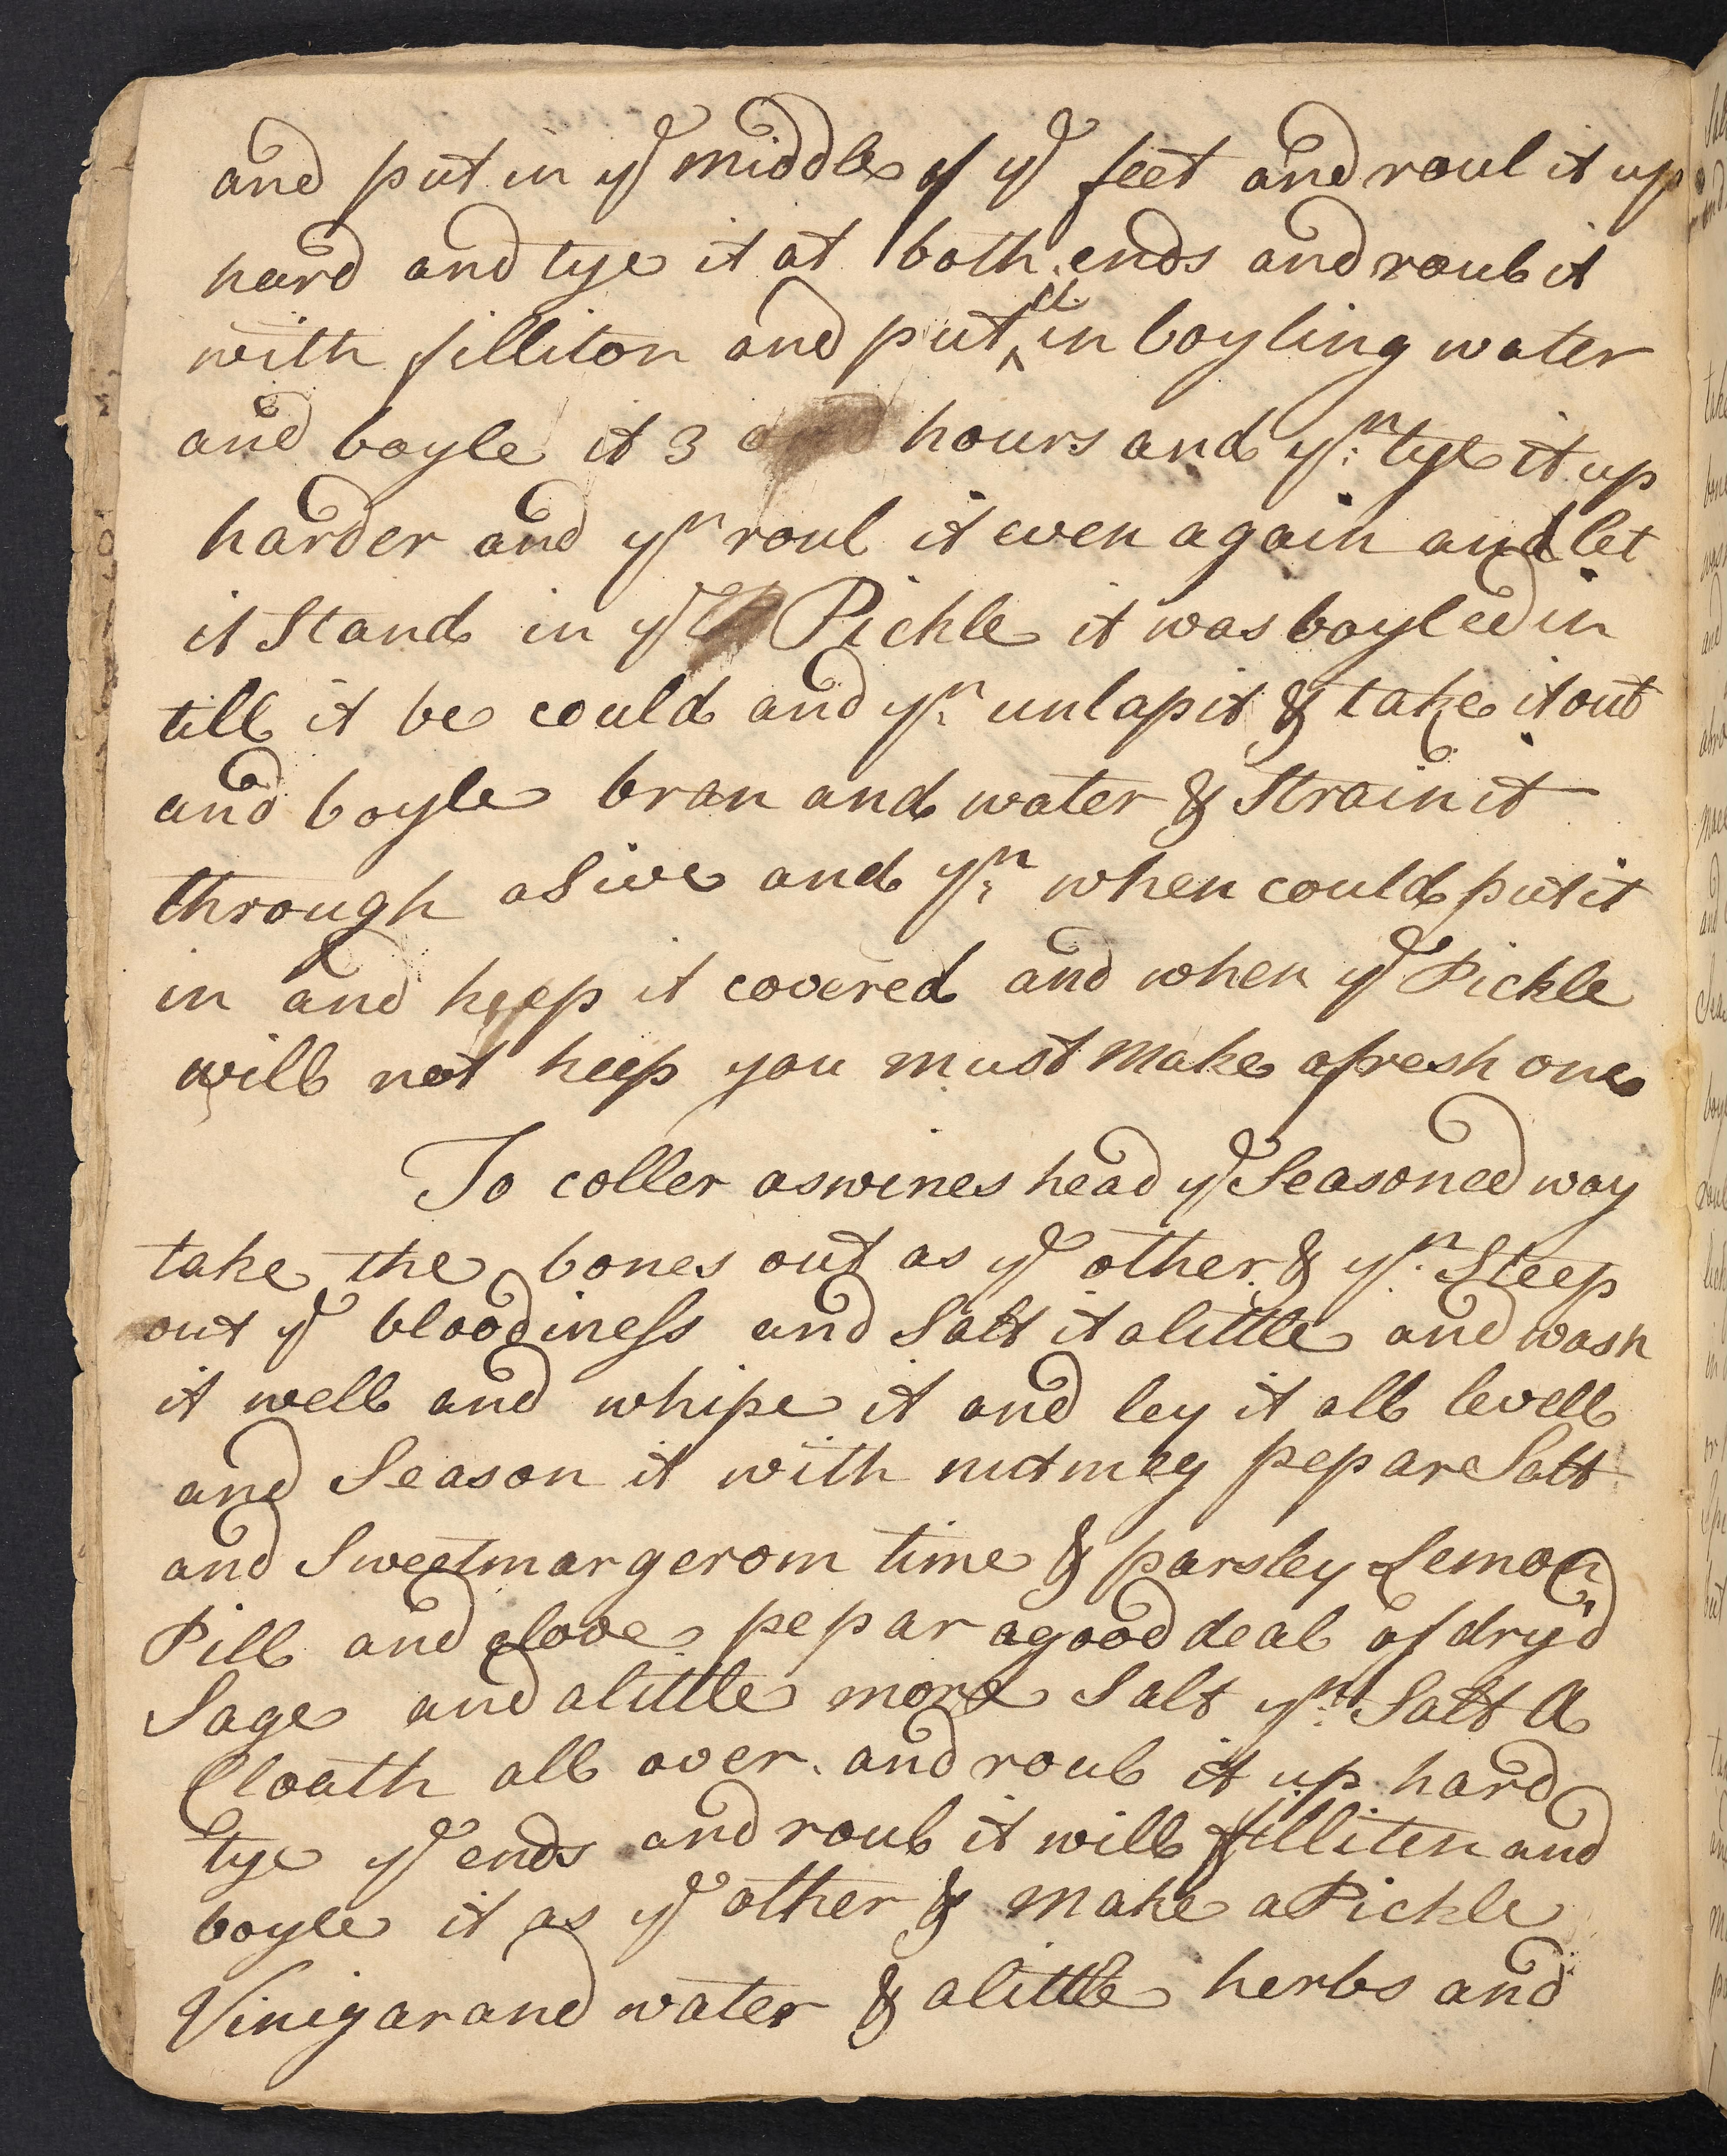 and put in ye middle of ye feet and roul it up
hard and tye it at both ends and roul it
with filliton and put it in boyling water
and boyle it 3 hours and yn: tye it up
harder and yn roul it even again and let
it Stand in ye Pickle it was boyled in
till it be could and yn: unlap it & take it out
and boyle bran and water & Strain it
through a Sive and yn: when could put it
in and keep it covered and when ye Pickle
will not keep you must make a fresh one
To coller a swines head ye Seasoned way
take the bones out as ye other & yn: Steep
out ye bloodiness and Salt it a little and wash
it well and whipe it and ley it all levell
and Season it with nutmeg pepar Salt
and Sweetmargerom time & parsley Lemon
Pill and clove pepar a good deal of dry'd
Sage and a little more Salt yn: Salt a
Cloath all over and roul it up hard
tye ye ends and roul it will filliten and
boyle it as ye other & make a Pickle
Vinigar and water & a little herbs and